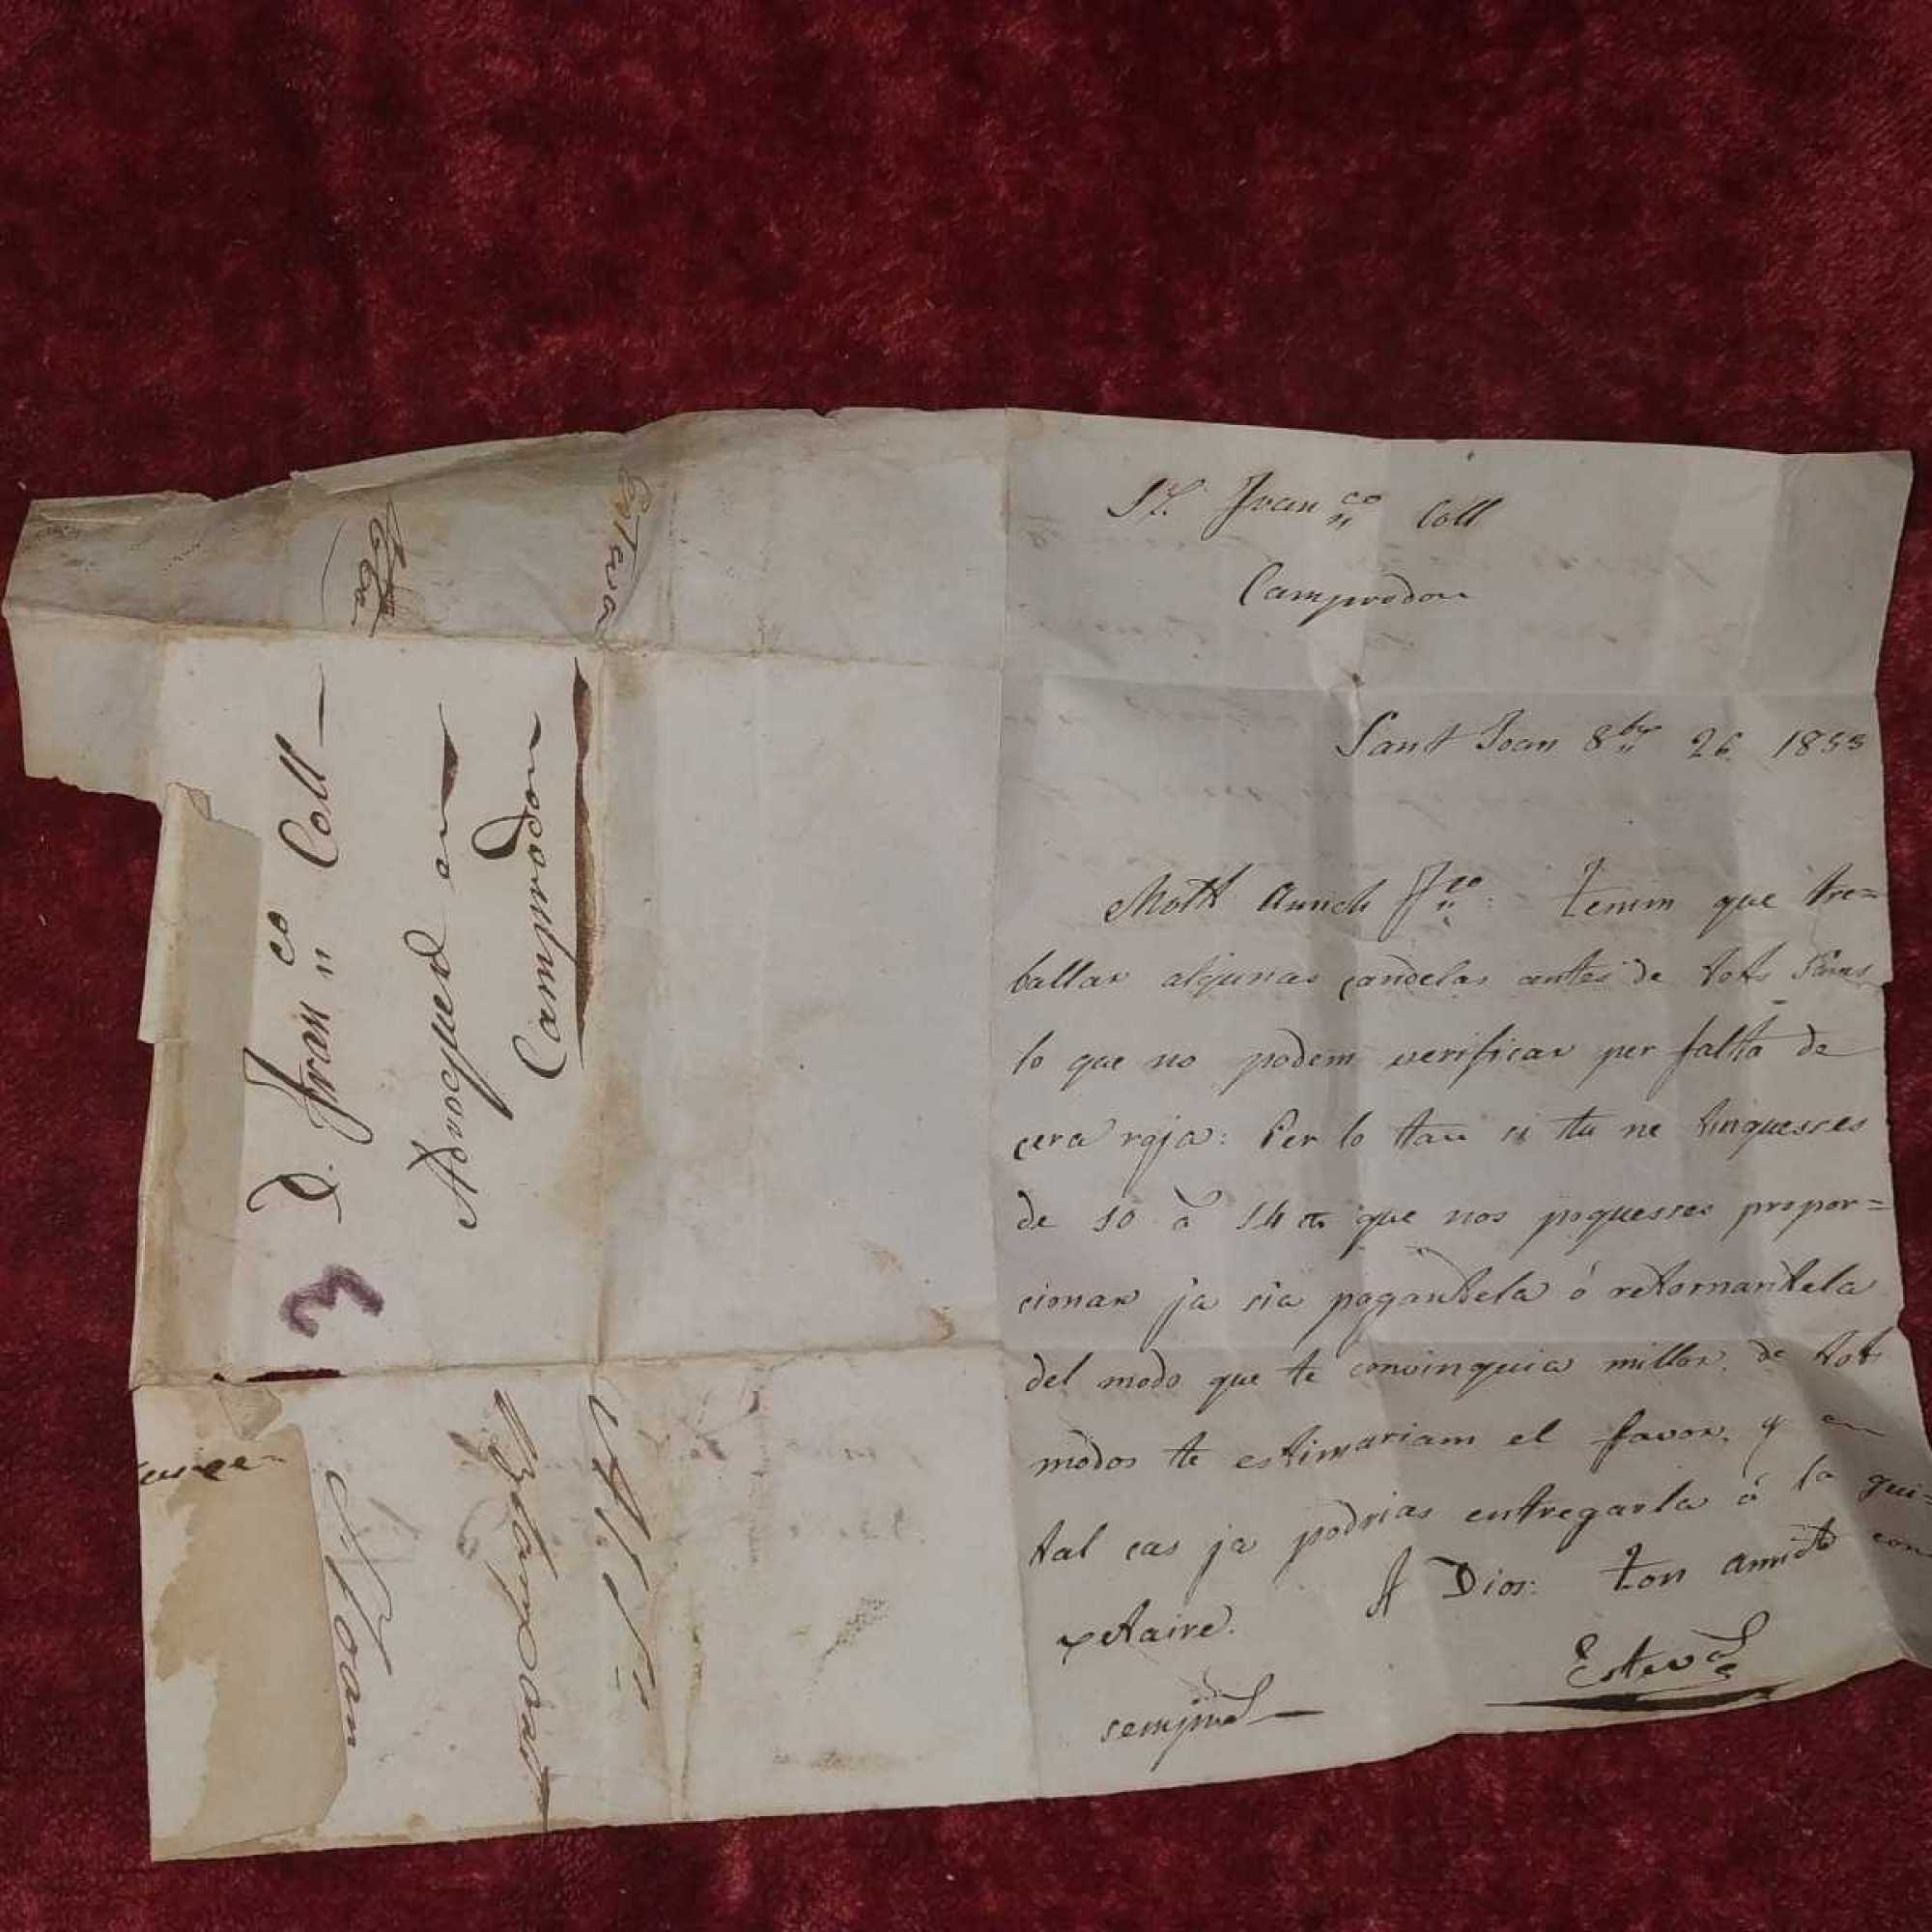 Sr. Franco Coll
Camprodon
Sant Joan 8bre 26 1833
Molt Amich Fco: Tenim que tre=
ballar algunas candelas antes de tots Sans
lo que no podem verificar per falta de
cera roja: Per lo tan si tu ne tinguesses
de 10 á 14 que nos poguesses propor=
cionar ja sia pagantela ó retornantela
del modo que te convinguia millor, de tots
modos te estimariam el favor, y en
tal cas ja podrias entregarla á la gui=
xetaire. A Dios: Ton amich com
sempre
Esteva
D. Franco Coll
Advoquad en
Camprodon
3
Esteva